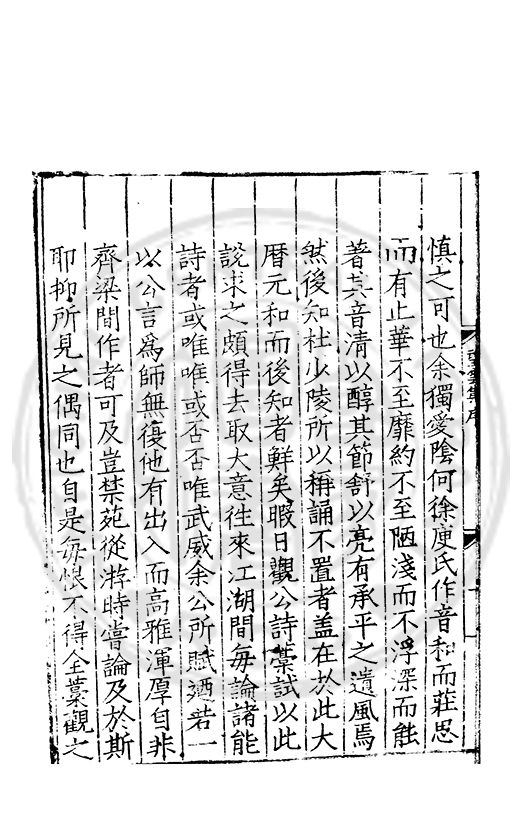 慎之可也余獨愛陰何徐庾氏作音和而莊思
而有止華不至靡約不至陋淺而不浮深而能
著其音清以醇其節舒以亮有承平之遺風焉
然後知杜少陵所以稱誦不置者盖在於此大
曆元和而後知者鮮矣暇日觀公詩藁試以此
說求之頗得去取大意徃來江湖間每論諸能
詩者或唯唯或否否唯武威余公所賦廼若一
以公言爲師無復他有出入而高雅渾厚自非
齊梁間作者可及豈禁苑從游時嘗論及於斯
耶抑所見之偶同也自是每恨不得全藁觀之